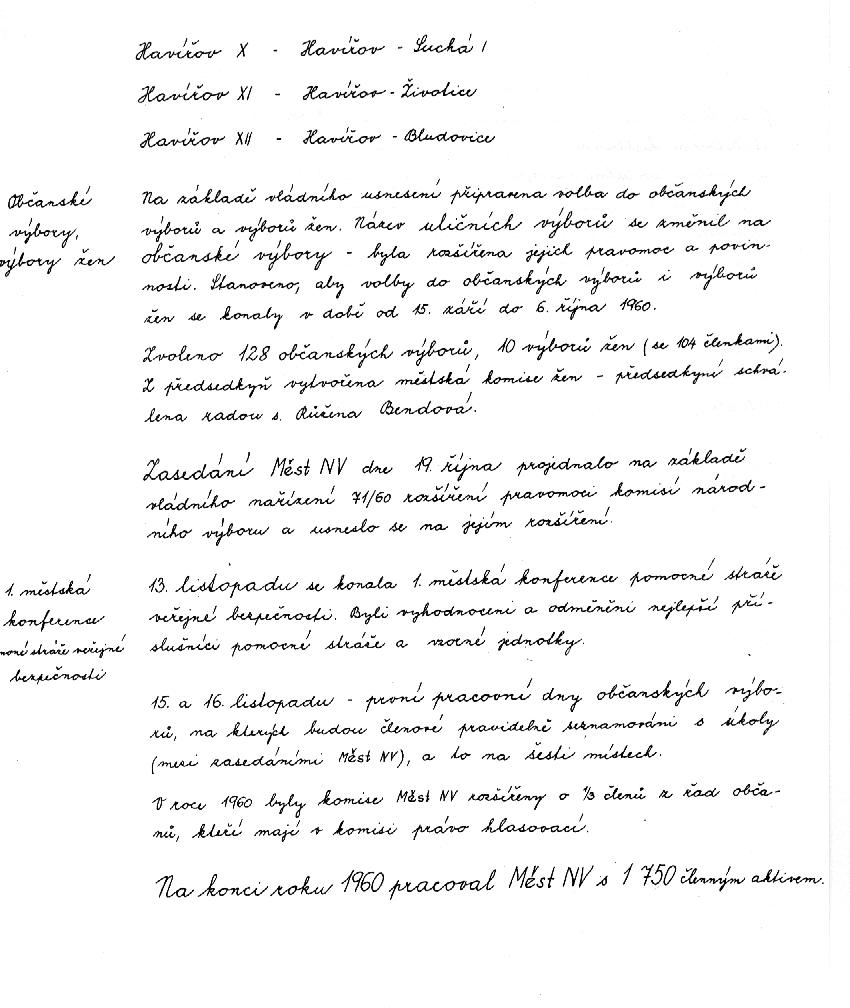 Havířov X - Havířov - Suchá 1
Havířov XI - Havířov - Životice
Havířov XII - Havířov - Bludovice
Občanské
výbory,
výbory žen
Na základě vládního usnesení připravena volba do občanských
výborů a výborů žen. Název uličních výborů se změnil na
občanské výbory - byla rozšířena jejich pravomoc a povin-
nosti. Stanoveno, aby volby do občanských výborů i výborů
žen se konaly v době od 15. září do 6. října 1960.
Zvoleno 128 občanských výborů, 10 výborů žen (se 104 členkami).
Z předsedkyň vytvořena městská komise žen - předsedkyní schvá-
lena radou s. Růžena Bendová.
Zasedání Měst NV dne 19. října projednalo na základě
vládního nařízení 71/60 rozšíření pravomoci komisí národ-
ního výboru a usneslo se na jejím rozšíření.
1. městská
konference
mocné stráže veřejné
bezpečnosti
13. listopadu se konala 1. městská konference pomocné stráže
veřejné bezpečnosti. Byli vyhodnoceni a odměněni nejlepší pří-
slušníci pomocné stráže a vzorné jednotky.
15. a 16. listopadu - první pracovní dny občanských výbo-
rů, na kterých budou členové pravidelně seznamováni s úkoly
(mezi zasedáními Měst NV), a to na šesti místech.
V roce 1960 byly komise Měst NV rozšířeny o 1/3 členů z řad obča-
nů, kteří mají v komisi právo hlasovací.
Na konci roku 1960 pracoval Měst NV s 1 750 členným aktivem.